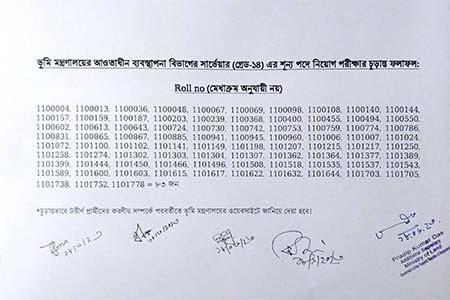 ভূমি মন্ত্রণালয়ের আওতাধীন ব্যবস্থাপনা বিভাগের সার্ভেয়ার (গ্রেড-১৪) এর শূন্য পদে নিয়োগ পরীক্ষার চূড়ান্ত ফলাফল:
Roll no (মেধাক্রম অনুযায়ী নয়)
1100004, 1100013, 1100036, 1100048, 1100067, 1100069, 1100098, 1100108, 1100140, 1100144,
1100157, 1100159, 1100187, 1100203, 1100239, 1100368, 1100400, 1100455, 1100494, 1100550,
1100602, 1100613, 1100643, 1100724, 1100730, 1100742, 1100753, 1100759, 1100774, 1100786,
1100831, 1100865, 1100867, 1100885, 1100941, 1100945, 1100960, 1101006, 1101007, 1101024,
1101072, 1101100, 1101102, 1101141, 1101149, 1101198, 1101207, 1101215, 1101217, 1101250,
1101258, 1101274, 1101302, 1101303, 1101304, 1101307, 1101362, 1101364, 1101377, 1101389,
1101399, 1101444, 1101450, 1101466, 1101496, 1101508, 1101518, 1101535, 1101537, 1101543,
1101589, 1101600, 1101603, 1101615, 1101617, 1101622, 1101632, 1101644, 1101703, 1101705,
1101738, 1101752, 1101778 = ৮৩ জন
*চূড়ান্তভাবে উত্তীর্ণ প্রার্থীদের করণীয় সম্পর্কে পরবর্তীতে ভূমি মন্ত্রণালয়ের ওয়েবসাইটে জানিয়ে দেয়া হবে।
Pradip Kumar Das
Additional Secretary
Ministry of Land